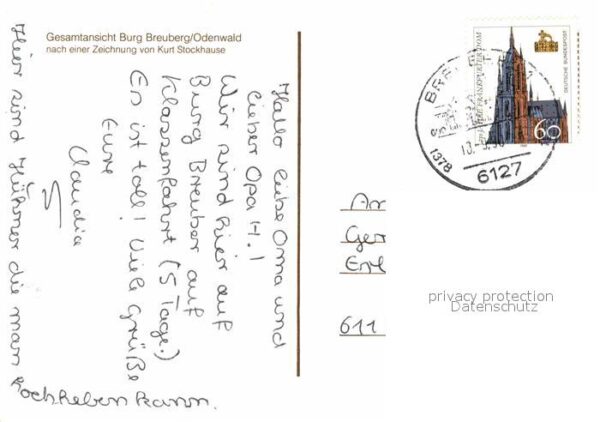 Gesamtansicht Burg Breuberg/Odenwald
nach einer Zeichnung von Kurt Stockhause
Hallo liebe Oma und
lieber Opa H.!
Wir sind hier auf
Burg Breuber auf
Klassenfahrt (5 Tage.)
Es ist toll! Viele Grüße
Eure
Claudia
Hier sind Hühner die man
hochheben kann.
FRANKFURTER DOM
DEUTSCHE BUNDESPOST
60
1378
6127
Ar
Ger
611
privacy protection
Datenschutz